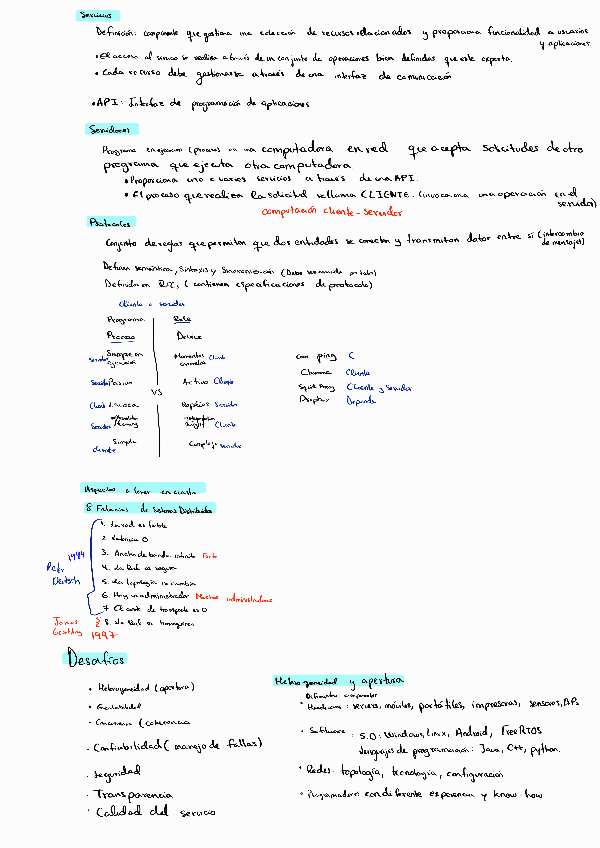 Servicios
Definición: componente que gestiona una colección de recursos relacionados y proporciona funcionalidad a usuarios
y aplicaciones
• El acceso al servicio se realiza a través de un conjunto de operaciones bien definidas que este exporta.
• Cada recurso debe gestionarse a través de una interfaz de comunicación
• API: Interfaz de programación de aplicaciones
Servidores
Programa en ejecución (proceso) en una computadora en red que acepta solicitudes de otro
programa que ejecuta otra computadora
• Proporciona uno o varios servicios a través de una API.
• El proceso que realiza la solicitud se llama CLIENTE. (invoca una operación en el
servidor)
computación cliente-servidor
Protocolos
Conjunto de reglas que permiten que dos entidades se conecten y transmitan datos entre sí (intercambio
de mensajes)
Definen semántica, Sintaxis y Sincronización
Definidos en RFC, (contienen especificaciones de protocolo)
Cliente o servidor
Programa Role
Proceso Device
Servidor Siempre en ejecución Momentos Cliente
Servidor Pasivo Activo Cliente
VS
Cliente Invoca Replies Servidor
Servidor Cliente
Simple Cliente Compleja Servidor
ping C
Chrome Cliente
Squid Proxy Cliente y Servidor
Depende
Aspectos a tener en cuenta
8 Falacias de Sistemas Distribuidos
1. La red es fiable
2. Latencia 0
3. Ancho de banda infinito
4. La Red es segura
5. La topología no cambia
6. Hay un administrador Muchos administradores
7. El coste de transporte es 0
8. La Red es homogénea
1994
Peter
Deutsch
James
Gosling 1997
Desafíos
• Heterogeneidad (apertura)
• Escalabilidad
• Concurrencia (coherencia
• Confiabilidad (manejo de fallas)
• Seguridad
• Transparencia
• Calidad del servicio
Heterogeneidad y apertura
Diferentes
• Hardware: servers, móviles, portátiles, impresoras, sensores, APs
• Software: S.O: Windows, Linux, Android, FreeRTOS
Lenguajes de programación: Java, C++, python.
• Redes: topología, tecnología, configuración
• Programadores: con diferente experiencia y know-how